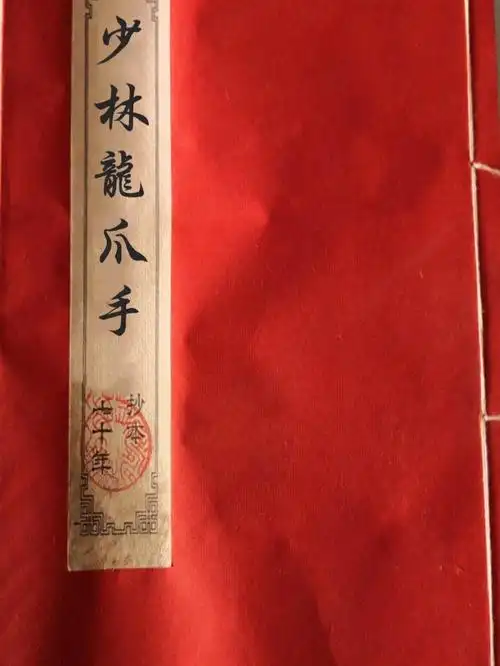 少林龍爪手
抄本
七十年